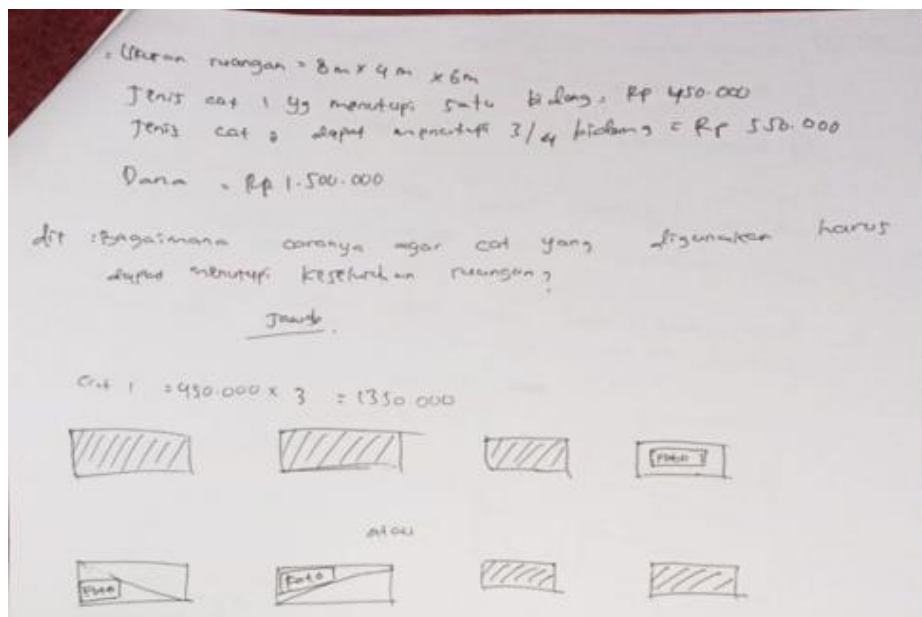 Ukuran ruangan = 8m x 4m x 6m
Jenis cat 1 yg menutupi satu bidang = Rp 450.000
Jenis cat 2 dapat menutupi 3/4 bidang = Rp 550.000
Dana = Rp 1.500.000
dit : Bagaimana caranya agar cat yang digunakan harus
dapat menutupi keseluruhan ruangan?
Jawab
Cat 1 = 450.000 x 3 = 1350 000
Foto
atau
Foto Foto